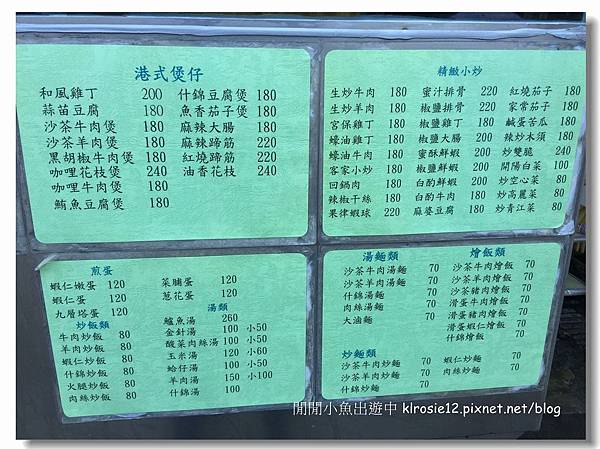 港式煲仔
和風雞丁 200 什錦豆腐煲 180
蒜苗豆腐 180 魚香茄子煲 180
沙茶牛肉煲 180 麻辣大腸 180
沙茶羊肉煲 180 麻辣蹄筋 220
黑胡椒牛肉煲 180 紅燒蹄筋 220
咖哩花枝煲 240 油香花枝 240
咖哩牛肉煲 180
鮪魚豆腐煲 180
精緻小炒
生炒牛肉 180 蜜汁排骨 220 紅燒茄子 180
生炒羊肉 180 椒鹽排骨 220 家常茄子 180
宮保雞丁 180 椒鹽雞丁 180 鹹蛋苦瓜 180
蠔油雞丁 180 椒鹽大腸 200 辣炒木須 180
蠔油牛肉 180 蜜酥鮮蝦 220 炒雙脆 240
客家小炒 180 椒鹽鮮蝦 220 開陽白菜 100
回鍋肉 180 白酌鮮蝦 200 炒空心菜 80
辣椒干絲 180 白酌牛肉 200 炒高麗菜 80
果律蝦球 220 麻婆豆腐 180 炒青江菜 80
煎蛋
蝦仁嫩蛋 120 菜脯蛋 120
蝦仁蛋 120 蔥花蛋 120
九層塔蛋 120
炒飯類
牛肉炒飯 80
羊肉炒飯 80
蝦仁炒飯 80
什錦炒飯 80
火腿炒飯 80
肉絲炒飯 80
湯類
鱸魚湯 260
金針湯 100 小50
酸菜肉絲湯 100 小50
玉米湯 120 小60
蛤仔湯 100 小50
羊肉湯 150 小100
什錦湯 100
湯麵類
沙茶牛肉湯麵 70
沙茶羊肉湯麵 70
什錦湯麵 70
肉絲湯麵 70
大滷麵 70
燴飯類
沙茶牛肉燴飯 70
沙茶羊肉燴飯 70
沙茶豬肉燴飯 70
滑蛋牛肉燴飯 70
滑蛋豬肉燴飯 70
滑蛋蝦仁燴飯 70
什錦燴飯 70
炒麵類
沙茶牛肉炒麵 70 蝦仁炒麵 70
沙茶羊肉炒麵 70 肉絲炒麵 70
什錦炒麵 70
閒閒小魚出遊中 klrosie12.pixnet.net/blog